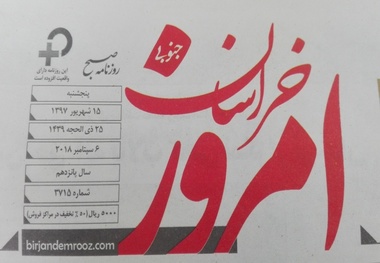 امروز
خراسان
جنوبی
روزنامه صبح
این روزنامه دارای
واقعیت افزوده است
پنجشنبه
۱۵ شهریور ۱۳۹۷
۲۵ ذی الحجه ۱۴۳۹
۶ سپتامبر ۲۰۱۸
سال پانزدهم
شماره ۳۷۱۵
۵۰۰۰ ریال(۵۰٪ تخفیف در مراکز فروش)
birjandemrooz.com